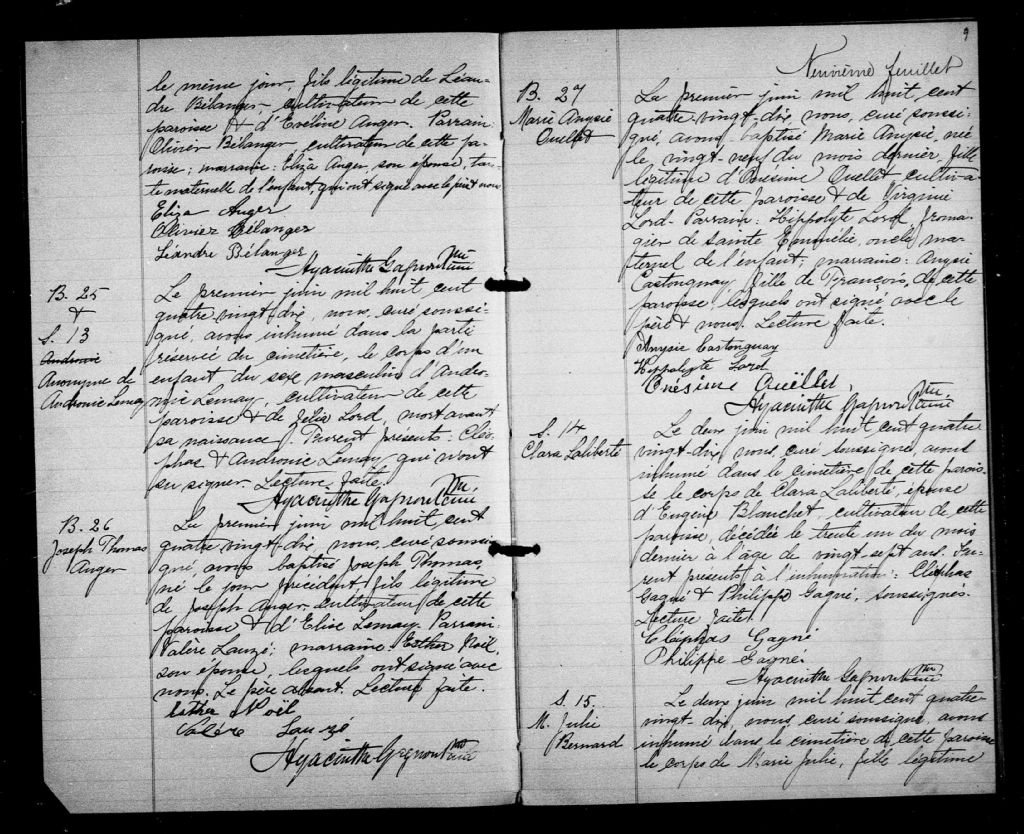 le même jour, fils légitime de Léan-
dre Bélanger cultivateur de cette
paroisse & d'Eveline Auger. Parrain:
Olivier Bélanger, cultivateur de cette pa-
roisse; marraine: Eliza Auger, son épouse, tan-
te maternelle de l'enfant, qui ont signé avec le père & nous
Eliza Auger
Olivier Bélanger
Léandre Bélanger
Hyacinthe
B. 25
&
S. 13
Anonyme de
Andronic Lemay
Le premier juin mil huit cent
quatre vingt-dix, nous, curé soussi-
gné, avons inhumé dans la partie
réservée du cimetière, le corps d'un
enfant du sexe masculin d'Andro-
nic Lemay, cultivateur de cette
paroisse & de Zélia Lord, mort avant
sa naissance. Furent présents: Cléo-
phas & Andronic Lemay qui n'ont
su signer. Lecture faite.
Hyacinthe
B. 26
Joseph Thomas
Auger
Le premier juin mil huit cent
quatre vingt-dix, nous, curé soussi-
gné avons baptisé Joseph Thomas,
né le jour précédent, fils légitime
de Joseph Auger, cultivateur de cette
paroisse & d'Elise Lemay. Parrain:
Valère Lauzé; marraine: Esther Noël,
son épouse, lesquels ont signé avec
nous. Le père absent. Lecture faite.
Esther Noël
Valère Lauzé
Hyacinthe
9
Neuvième feuillet
B. 27
Marie Anysie
Ouellet
Le premier juin mil huit cent
quatre-vingt-dix, nous, curé soussi-
gné, avons baptisé Marie Anysie, née
le vingt-neuf du mois dernier, fille
légitime d'Onésime Ouellet cultiva-
teur de cette paroisse & de Virginie
Lord. Parrain: Hippolyte Lord, froma-
gier de Sainte Emmélie, oncle ma-
ternel de l'enfant; marraine: Anysie
Castonguay, fille de François, de cette
paroisse, lesquels ont signé avec le
père & nous. Lecture faite.
Anysie Castonguay
Hippolyte Lord
Onésime Ouëllet,
Hyacinthe
S. 14
Clara Laliberté
Le deux juin mil huit cent quatre
vingt-dix, nous, curé soussigné, avons
inhumé dans le cimetière de cette parois-
se le corps de Clara Laliberté, épouse
d'Eugène Blanchet, cultivateur de cette
paroisse, décédée le trente un du mois
dernier à l'âge de vingt-sept ans. Fu-
rent présents à l'inhumation: Cléophas
Gagné & Philippe Gagné, soussignés.
Lecture faite.
Cléophas Gagné
Philippe Gagné
Hyacinthe
S. 15.
M. Julie
Bernard
Le deux juin mil huit cent quatre-
vingt-dix, nous, curé soussigné, avons
inhumé dans le cimetière de cette paroisse
le corps de Marie Julie, fille légitime